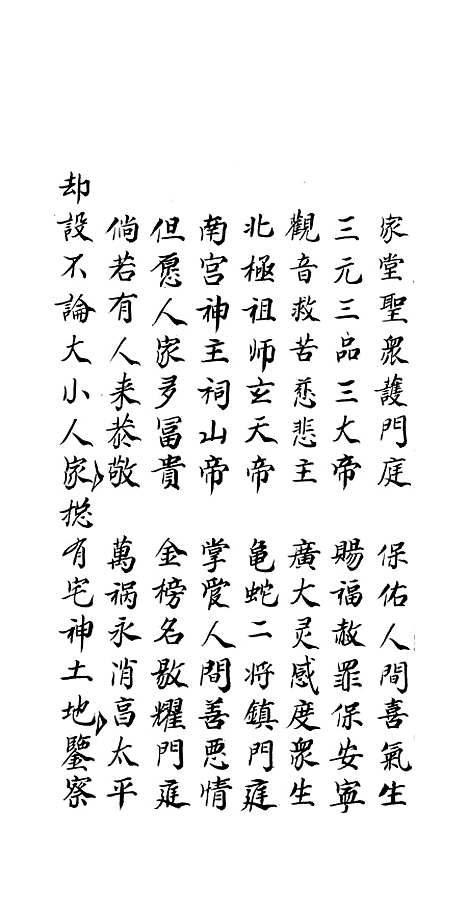 家堂聖衆護門庭　保佑人間喜氣生
三元三品三大帝　賜福赦罪保安寧
觀音救苦慈悲主　廣大灵感度衆生
北極祖师玄天帝　龟蛇二将鎮門庭
南宫神主祠山帝　掌管人間善惡情
但愿人家多冨貴　金榜名敭耀門庭
倘若有人来恭敬　萬祸永消享太平
却設不論大小人家捴有宅神土地鑒察